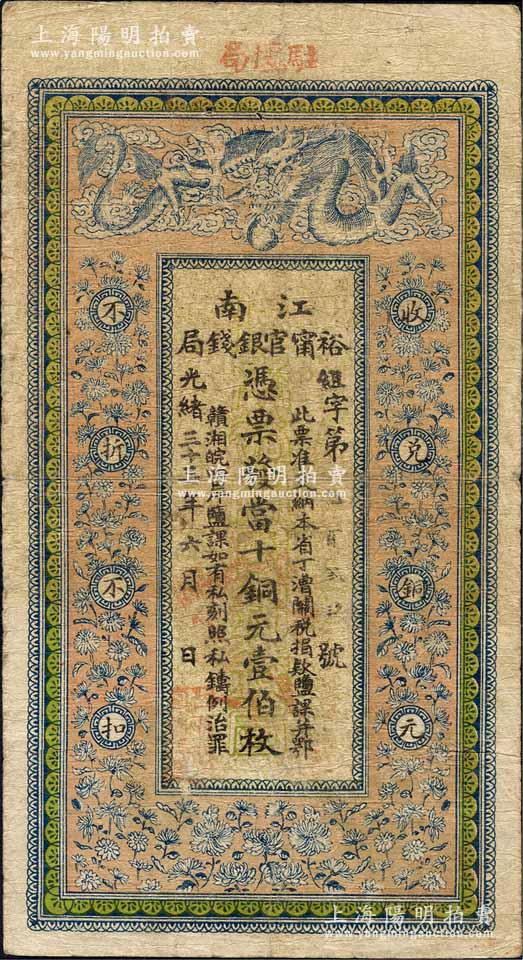 上海陽明拍賣
www.yangmingauction.com
駐滬局
江南
裕甯官銀錢局
收兌銅元
不折不扣
紐字第 號
此票准 納本省丁漕關稅捐欵鹽課并鄂
憑票 當十銅元壹佰枚
贛湘皖 鹽課如有私刻照私鑄例治罪
光緒三十 年六月 日
上海陽明拍賣
www.yangmingauction.com
上海陽明拍賣
www.yangmingauction.com